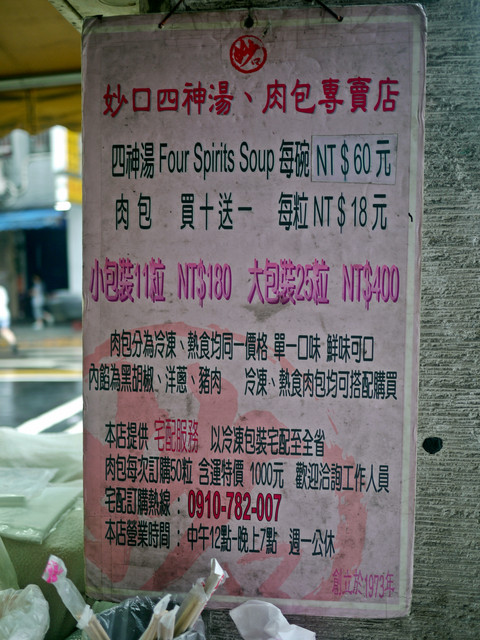 妙口
妙口四神湯、肉包專賣店
四神湯 Four Spirits Soup 每碗 NT$60元
肉包 買十送一 每粒 NT$18元
小包裝11粒 NT$180 大包裝25粒 NT$400
肉包分為冷凍、熱食均同一價格 單一口味 鮮味可口
內餡為黑胡椒、洋蔥、豬肉 冷凍、熱食肉包均可搭配購買
本店提供 宅配服務 以冷凍包裝宅配至全省
肉包每次訂購50粒 含運特價 1000元 歡迎洽詢工作人員
宅配訂購熱線：0910-782-007
本店營業時間：中午12點-晚上7點 週一公休
創立於1973年